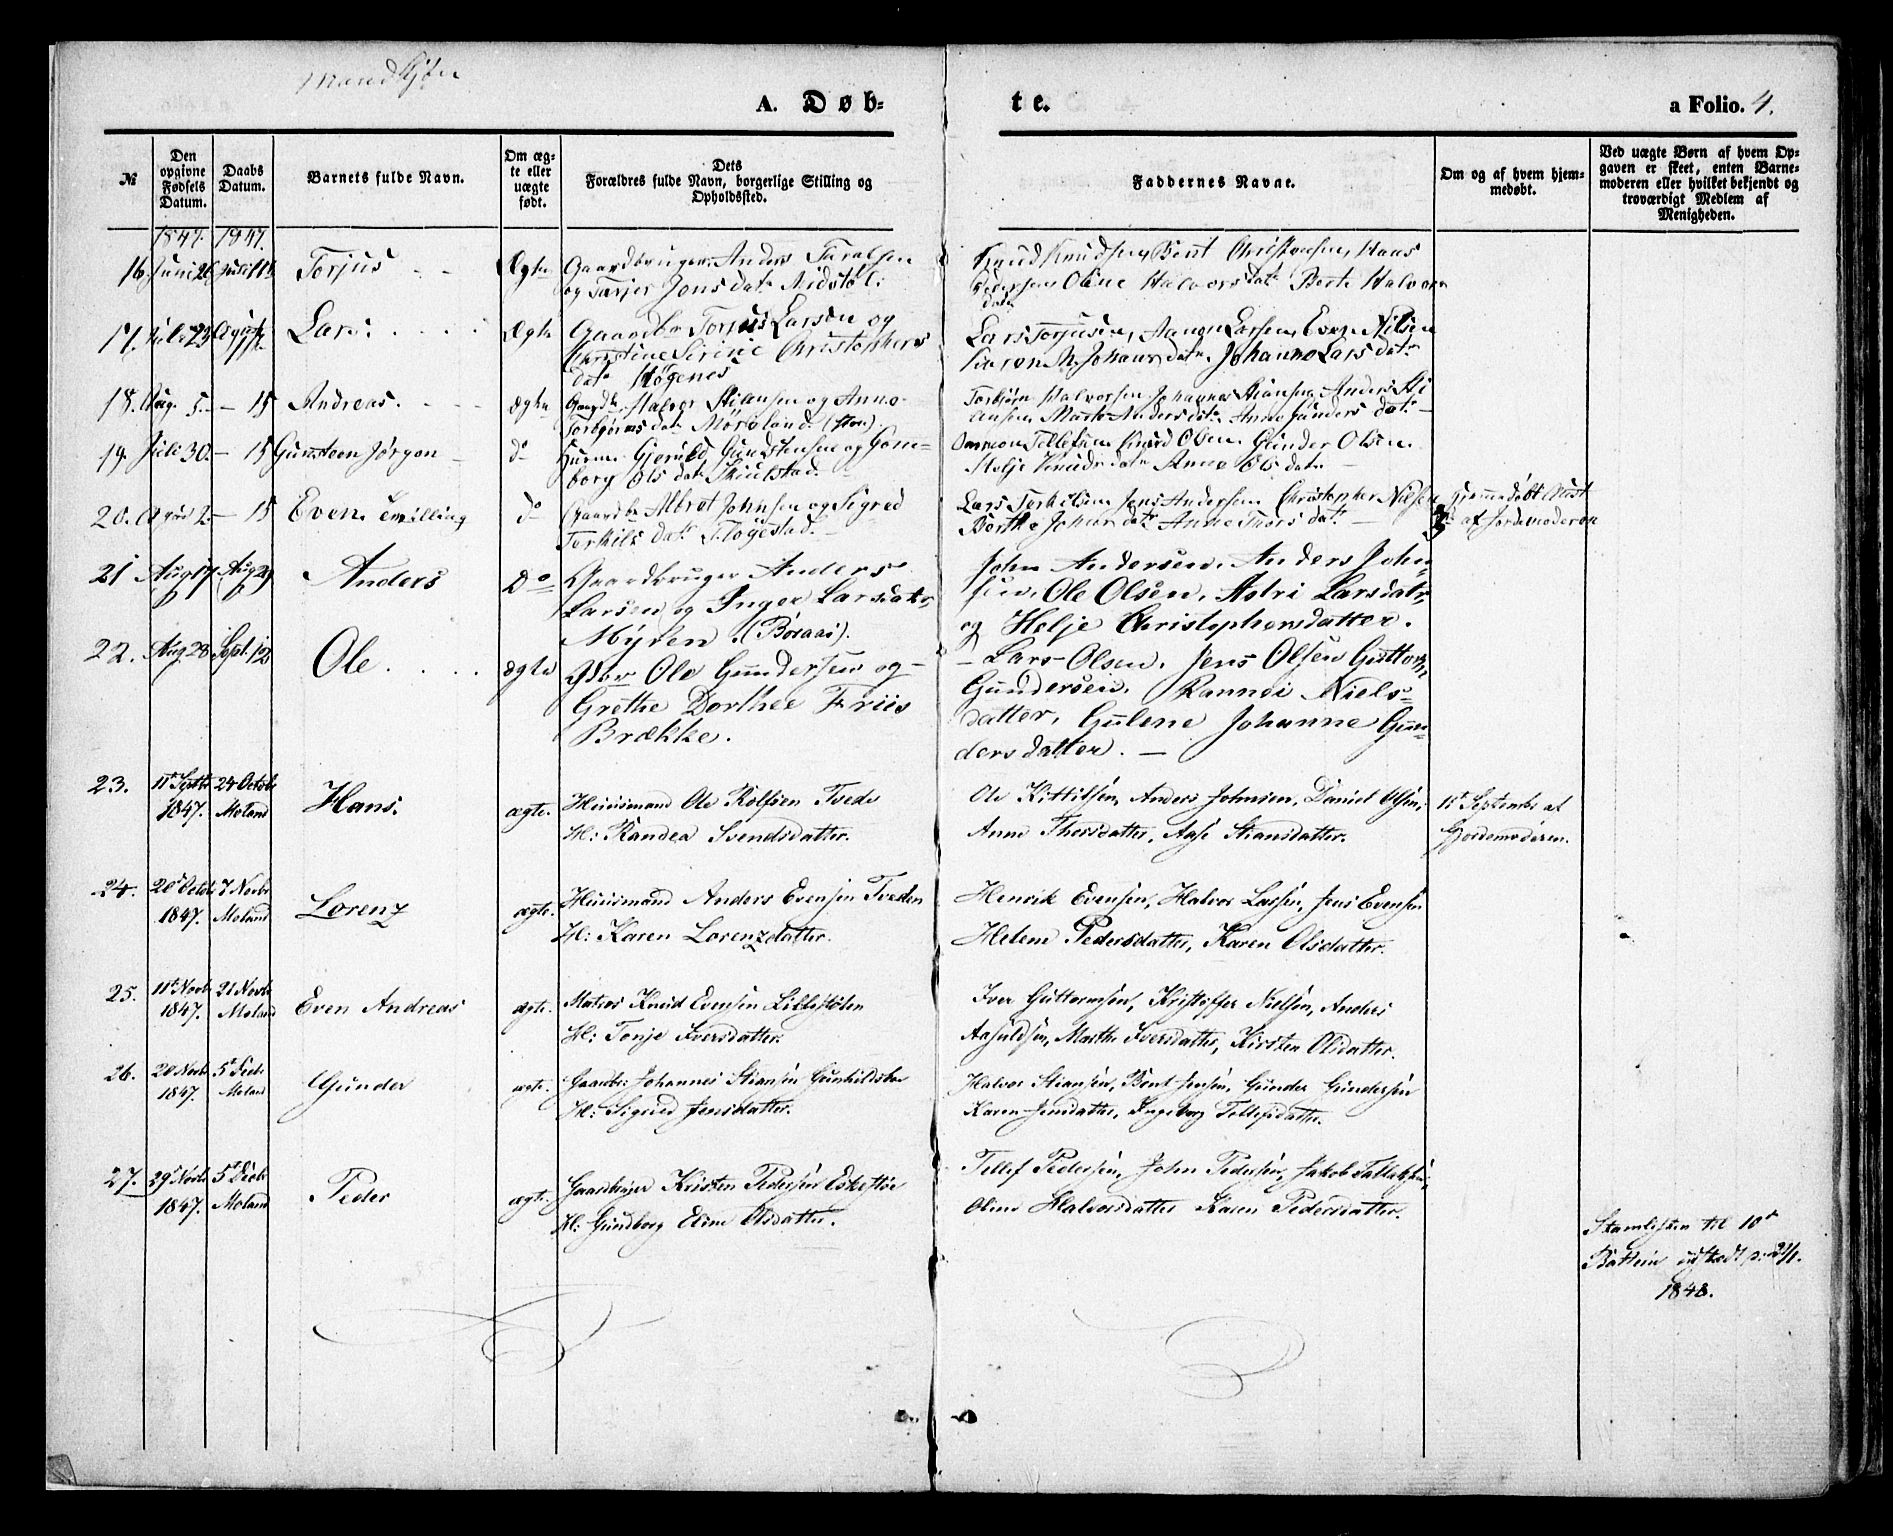 Mandkjøn
A. Døb-
te.
a Folio. 4.
№
Den opgivne Fødsels Datum.
Daabs Datum.
Barnets fulde Navn.
Om ægte eller uægte født.
Dets Forældres fulde Navn, borgerlige Stilling og Opholdssted.
Faddernes Navne.
Om og af hvem hjemmedøbt.
Ved uægte Børn af hvem Opgaven er skeet, enten Barnemoderen eller hvilket bekjendt og troværdigt Medlem af Menigheden.
1847. 1847.
16. Juni 26 Torjus Ægte Gaardbruger Anders Taralsen
og Tarjer Jonsdatr Midstøl:
Knud Knudsen, Bent Christensen, Hans
Pedersen Oline Halvorsdatr Berte Halvors
datr
17. Juli 23 Lars. Ægte Gaardbr Torjus Larsen og
Christine Sirine Christophers
datr Høgenes
Lars Torjusen, Aanon Larsen, Even Nilsen
Johanne Larsdatr
18. Aug. 5. - 15 Andreas. ægte Gaardbr Halvor Stiansen og Anne
Torbjørnsdatr Møreland.
Torbjørn Halvorsen Johannes Stiansen Anders Sti
ansen Marte Andersdatr Anne Gunders datr
19. Juli 30. - 15 Gunsteen Jørgen do Huusm Gjeruld Gundstensen og Gun-
borg Olsdatr Skiulstad.
Aanon Tellefsen Knud Olsen. Gunder Olsen.
Helje Knudsdatr Anne Olsdatr
20. 2. - 15 Even tvilling do Gaardbr Albret Johnsen og Sigred
Terkilsdatr Fløgestad.
Lars Terkilsen Jens Andersen Christopher Nilsen
Berthe Johnsdatr Anne Thorsdatr
Hjemmedøbt
af Jordemoderen
21 Aug 17 Aug 29 Anders Do Gaardbruger Anders
Larsen og Inger Larsdatr,
Myren. (Bosaas).
John Andersen. Anders John-
sen, Ole Olsen. Astri Larsdatr,
og Helje Christophersdatter.
22. Aug 28 Sept. 12 Ole ægte Gbr Ole Gundersen og
Grethe Dorthee Friis
Brække.
Lars Olsen. Jens Olsen Guttorm
Gundersen. Rannei Niels-
datter, Gulene Johanne Gun-
dersdatter.
23. 11te Septbr 24 Octobr Hans. ægte. Huusmand Ole Rolfsen Tvede
1847. Moland H: Kandea Svendsdatter.
Ole Kittilsen, Anders Johnsen, Daniel Olsen,
Anne Thorsdatter, Aase Stiansdatter.
Septembr af
Gjordemoderen.
24. 20d Octbr 7 Novbr Lorenz ægte. Huusmand Anders Evensen Tveden
1847. Moland H: Karen Lorenzdatter.
Henrik Evensen, Halvor Larsen, Jens Evensen
Helene Pedersdatter, Karen Olsdatter.
25. 11te Novbr 21 Novbr Even Andreas ægte. Matros Knud Evensen Lillestølen
1847. Moland H: Tonje Iversdatter.
Iver Guttormsen, Kristoffer Nielsen, Anders
Aasuldsen, Marthe Iversdatter, Kirsten Olsdatter.
26. 20 Novbr 5t Decbr Gunder ægte. Gaardbr: Johannes Stiansen Gunhildsbo
1847. Moland H: Sigrid Jensdatter.
Halvor Stiansen, Bent Jensen, Gunder Gundersen
Karen Jensdatter, Ingeborg Tellefsdatter.
27. 29 Novbr 5t Decbr Peder ægte. Gaardbruger Kristen Pedersen Eskestøe
1847. Moland H: Gunborg Eline Olsdatter.
Tellef Pedersen, John Pedersen, Jakob Tallaksen,
Oline Halvorsdatter Karen Pedersdatter.
Stamlisten til 10d
udstædt p: 21/1.
1848.